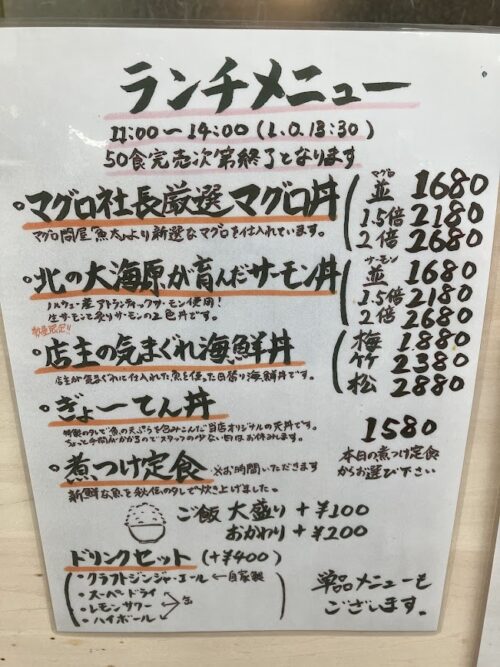 ランチメニュー
11:00〜14:00(L.O.13:30)
50食完売次第終了となります
・マグロ社長厳選マグロ丼
マグロ問屋「魚太」より新選なマグロを仕入れています。
マグロ
並 1680
1.5倍 2180
2倍 2680
・北の大海原が育んだサーモン丼
ノルウェー産アトランティックサーモン使用!
生サーモンと炙りサーモンの2色丼です。
サーモン
並 1680
1.5倍 2180
2倍 2680
数量限定!!
・店主の気まぐれ海鮮丼
店主が気まぐれで仕入れた魚を使った日替り海鮮丼です。
梅 1880
竹 2380
松 2880
・ぎょーてん丼
特製のタレで魚の天ぷらを包みこんだ当店オリジナルの天丼です。
ちょっと手間がかかるのでスタッフの少ない日はお休みします。
1580
・煮つけ定食 ※お時間いただきます
新鮮な魚を秘伝のタレで炊き上げました。
本日の煮つけ定食
からお選び下さい
ご飯 大盛り +¥100
おかわり +¥200
ドリンクセット (+¥400)
・クラフトジンジャーエール ←自家製
・スーパードライ
・レモンサワー
・ハイボール
缶
単品メニューも
ございます。